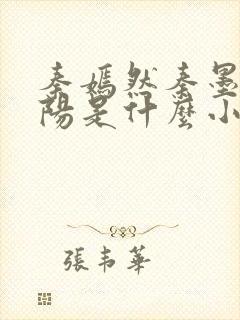 秦嫣然秦墨
陽是什麼小
張韋華